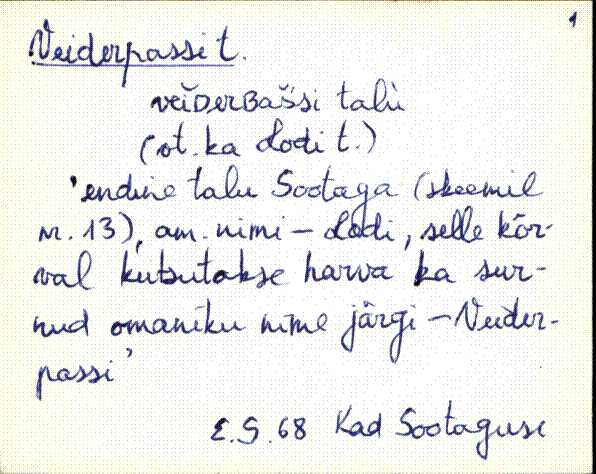 1
Veiderpassi t.
veĭDerBaš̆si talù
(ot. ka Lodi t.)
'endine talu Sootaga (skeemil
nr. 13), am. nimi – Lodi, selle kõr-
val kutsutakse harva ka sur-
nud omaniku nime järgi – Veider-
passi'
E.S. 68 Kad Sootaguse